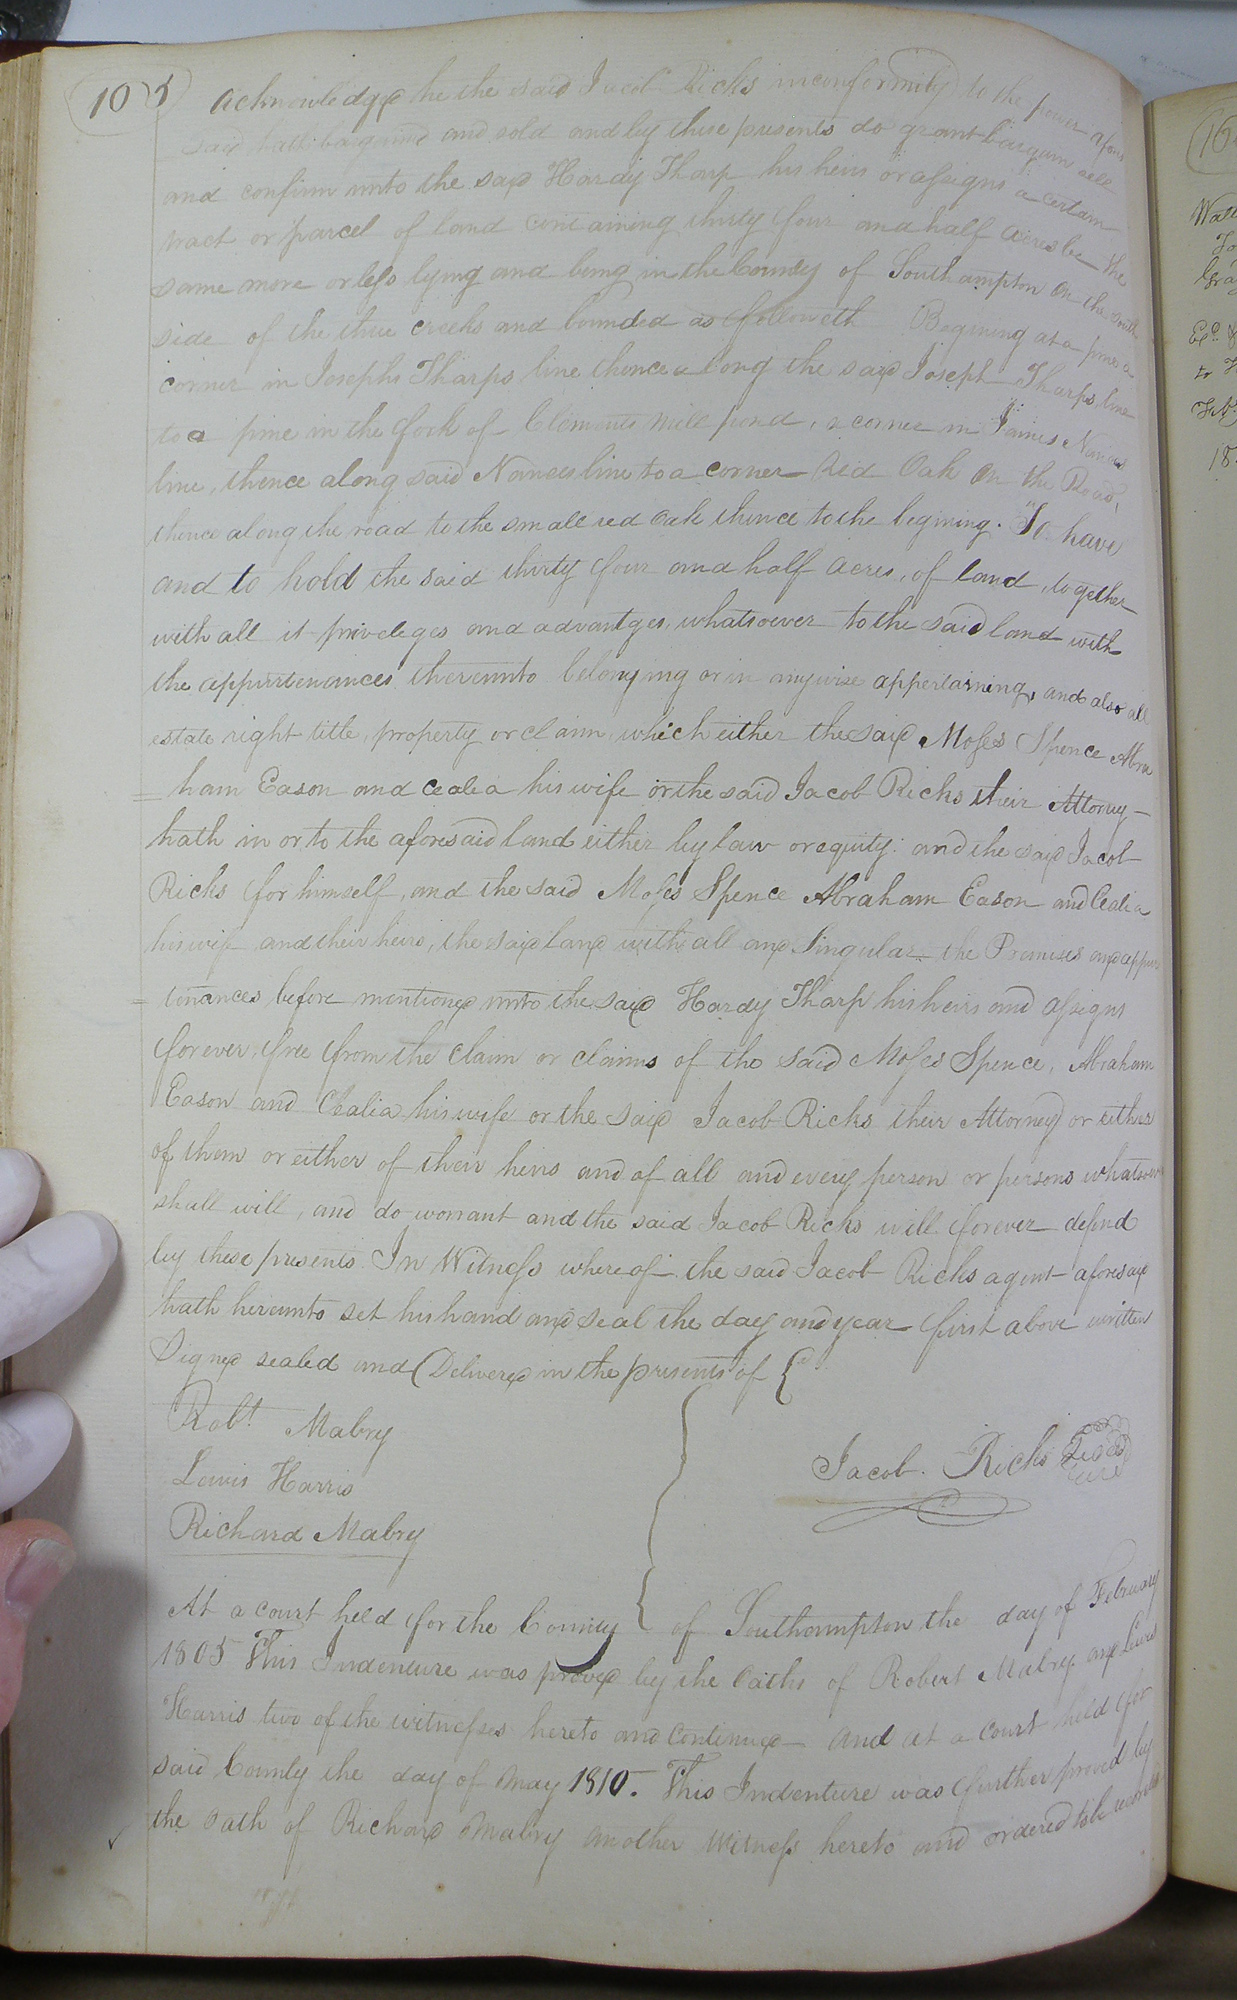 105
acknowledged he the said Jacob Ricks inconformity to the power afore
said hath bargained and sold and by these presents do grant bargain sell
and confirm unto the said Hardy Tharp his heirs or assigns a certain
tract or parcel of land containing thirty four and half acres be the
same more or less lying and being in the County of Southampton on the south
side of the three creeks and bounded as followeth Begining at a pine a
corner in Josephs Tharps line thence along the said Joseph Tharps line
to a pine in the fork of Clements mill pond, a corner in James Nanses
line, thence along said Nanses line to a corner Red Oak on the Road,
thence along the road to the small red Oak thence to the begining. To have
and to hold the said thirty four and half acres, of land, together
with all it priveleges and advantges, whatsoever to the said land with
the appurtenances thereunto belonging or in anywise appertaining, and also all
estate right title, property or claim which either the said Moses Spence Abra
ham Eason and cealia his wife or the said Jacob Ricks their Attorney
hath in or to the aforesaid land either by law or equity: and the said Jacob
Ricks for himself, and the said Moses Spence Abraham Eason and Cealia
his wife and their heirs, the said land with all and Singular the Premises and appur
tenances before mentioned unto the said Hardy Tharp his heirs and assigns
forever, free from the claim or claims of the said Moses Spence, Abraham
Eason and Cealia his wife or the said Jacob Ricks their Attorney or either
of them or either of their heirs and of all and every person or persons whatsoever
shall will, and do warrant and the said Jacob Ricks will forever defend
by these presents In Witness whereof the said Jacob Ricks agent aforesaid
hath hereunto set his hand and seal the day and year first above written
Signed sealed and Delivered in the presents of
Robt. Mabry
Lewis Harris
Jacob. Ricks
Richard Mabry
At a court held for the County of Southampton the day of February
1805 This Indenture was proved by the Oaths of Robert Mabry and Lewis
Harris two of the witnesses hereto and Continued And at a Court held for
said County the day of May 1810. This Indenture was further proved by
the oath of Richard Mabry another Witness hereto and ordered to be